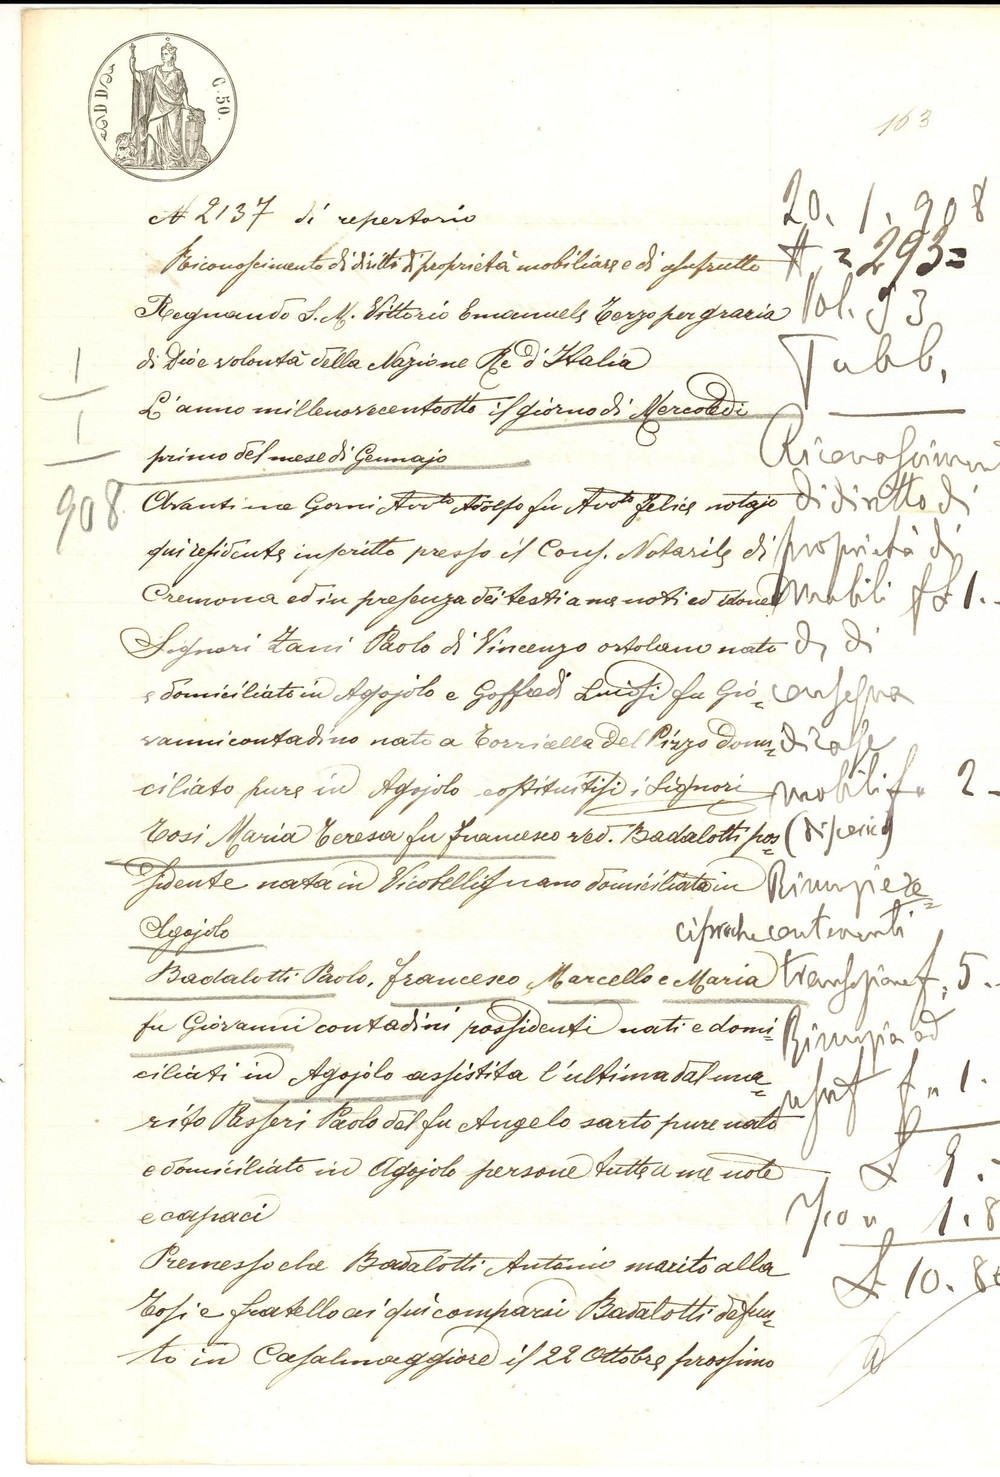 C. 50.
163
N 2137 di repertorio
Riconoscimento di diritti di proprietà mobiliare e di usufrutto
Regnando S. M. Vittorio Emanuele Terzo per grazia
di Dio e volontà della Nazione Re d'Italia
L'anno millenovecentootto il giorno di Mercoledì
primo del mese di Gennajo
Avanti me Gorni Avvto Adolfo fu Avvto Felice notajo
qui residente inscritto presso il Cons. Notarile di
Cremona ed in presenza dei testi a me noti ed idonei
Signori Zani Paolo di Vincenzo ortolano nato
e domiciliato in Agojolo e Goffredi Luigi fu Gio=
vanni contadino nato a Torricella del Pizzo domi=
ciliato pure in Agojolo costituitisi i Signori
Tosi Maria Teresa fu Francesco ved. Badalotti pos=
sidente nata in Vicobellignano domiciliata in
Agojolo
Badalotti Paolo, Francesco, Marcello e Maria
fu Giovanni contadini possidenti nati e domi=
ciliati in Agojolo assistita l'ultima dal ma=
rito Passeri Paolo del fu Angelo sarto pure nato
e domiciliato in Agojolo persone tutte a me note
e capaci
Premesso che Badalotti Antonio marito alla
Tosi e fratello ai qui comparsi Badalotti defun=
to in Casalmaggiore il 22 Ottobre prossimo
1
1
908
20. 1. 908
N = 293 =
Vol. 93
Pubb.
di diritto di
proprietà di
mobili £ 1. -
d, di
consegna
di
mobili 2 -
Rinunzie re=
ciproche contenenti
transazione £. 5. -
Rinunzia ad
usuf 1. -
£ 9. -
1. 8
£ 10. 80